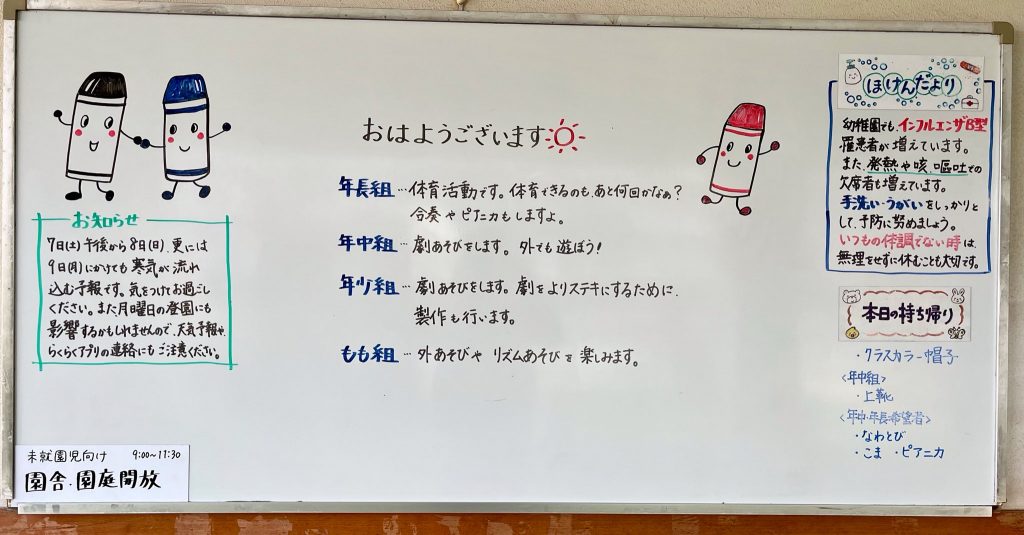 おはようございます
年長組…体育活動です。体育できるのも、あと何回かなぁ?
合奏やピアニカもしますよ。
年中組…劇あそびをします。外でも遊ぼう!
年少組…劇あそびをします。劇をよりステキにするために、
製作も行います。
もも組…外あそびや リズムあそびを楽しみます。
お知らせ
7日(土)午後から8日(日)、更には
9日(月)にかけても寒気が流れ
込む予報です。気をつけてお過ごし
ください。また月曜日の登園にも
影響するかもしれませんので、天気予報や、
らくらくアプリの連絡にもご注意ください。
未就園児向け 9:00~11:30
園舎・園庭開放
ほけんだより
幼稚園でも、インフルエンザB型
罹患者が増えています。
また、発熱や咳、嘔吐での
欠席者も増えています。
手洗い・うがいをしっかりと
して、予防に努めましょう。
いつもの体調でない時は、
無理をせずに休むことも大切です。
本日の持ち帰り
・クラスカラー帽子
<年中組>
・上靴
<年中・年長希望者>
・なわとび
・こま ・ピアニカ